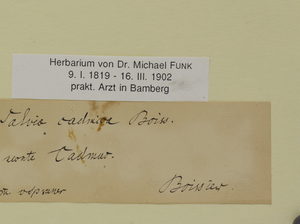 Herbarium von Dr. Michael FUNK
9. I. 1819 - 16. III. 1902
prakt. Arzt in Bamberg
Salvia cadmica Boiss.
monte Cadmus.
Boissier